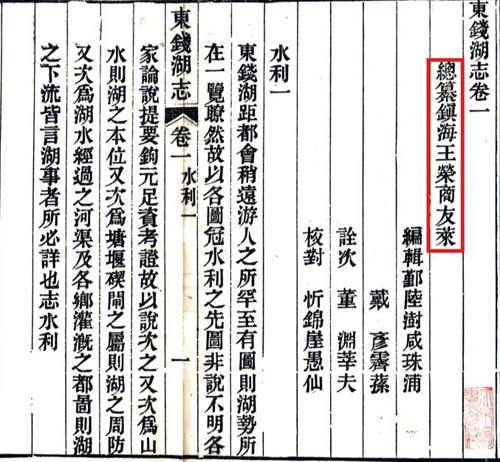 東錢湖志卷一
總纂鎮海王榮商友萊
編輯鄞陸澍咸珠浦
戴彥霽蓀
詮次董淵莘夫
校對忻錦崖愚仙
水利一
東錢湖距都會稍遠游人之所罕至有圖則湖勢所
在一覽瞭然故以各圖冠水利之先圖非說不明各
東錢湖志
卷一 水利一
一
家論說提要鉤元足資考證故以說次之又次爲山
水則湖之本位又次爲塘堰碶閘之屬則湖之周防
又次爲湖水經過之河渠及各鄉灌漑之都啚則湖
之下流皆言湖事者所必詳也志水利